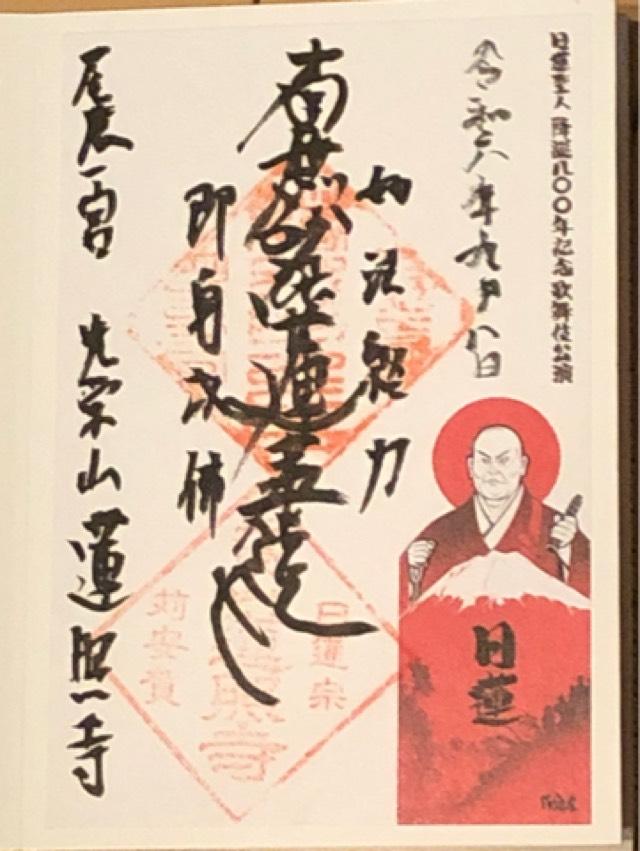 日蓮聖人 降誕八〇〇年記念歌舞伎公演
令和六年九月八日
妙法經力
南無妙法蓮華経
即身成佛
尾張一宮 光栄山 蓮照寺
日蓮宗
蓮照寺
苅安賀
日蓮